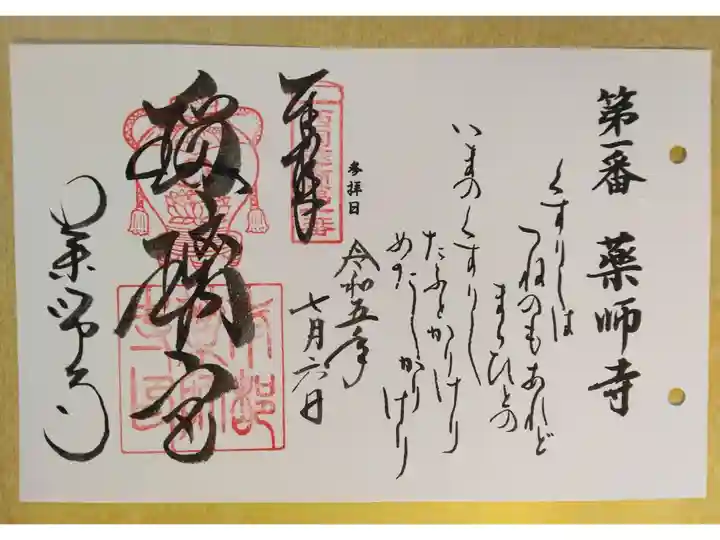 第一番 薬師寺
くすりしは
つねのもあれど
まらひとの
いまのくすりし
たふとかりけり
めだしかりけり
参拝日
令和五年
七月六日
奉拝
西国薬師第一番
瑠璃宮
薬師寺